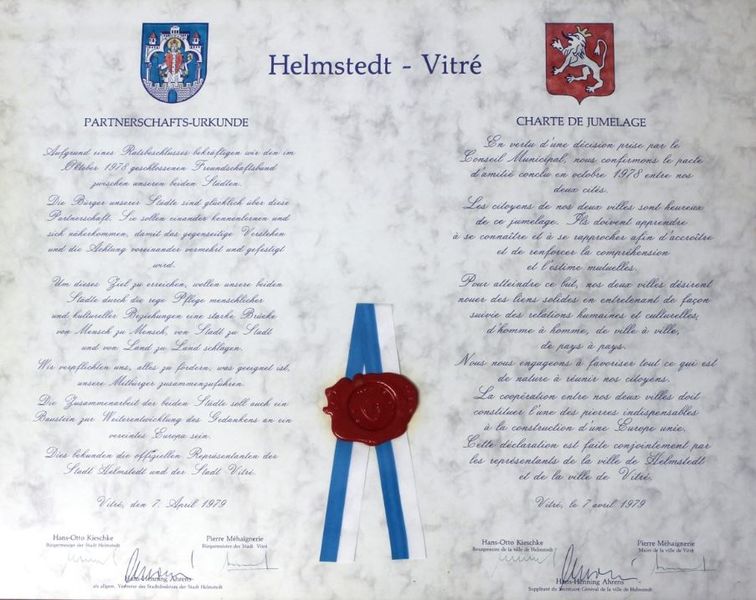 Helmstedt - Vitré
PARTNERSCHAFTS-URKUNDE
Aufgrund eines Ratsbeschlusses bekräftigen wir den im
Oktober 1978 geschlossenen Freundschaftsbund
zwischen unseren beiden Städten.
Die Bürger unserer Städte sind glücklich über diese
Partnerschaft. Sie sollen einander kennenlernen und
sich näherkommen, damit das gegenseitige Verstehen
und die Achtung voreinander vermehrt und gefestigt
wird.
Um dieses Ziel zu erreichen, wollen unsere beiden
Städte durch die rege Pflege menschlicher
und kultureller Beziehungen eine starke Brücke
von Mensch zu Mensch, von Stadt zu Stadt
und von Land zu Land schlagen.
Wir verpflichten uns, alles zu fördern, was geeignet ist,
unsere Mitbürger zusammenzuführen.
Die Zusammenarbeit der beiden Städte soll auch ein
Baustein zur Weiterentwicklung des Gedankens an ein
vereintes Europa sein.
Dies bekunden die offiziellen Repräsentanten der
Stadt Helmstedt und der Stadt Vitré.
Vitré, den 7. April 1979
Hans-Otto Kieschke
Bürgermeister der Stadt Helmstedt
Pierre Méhaignerie
Bürgermeister der Stadt Vitré
Hans-Henning Ahrens
als allgem. Vertreter des Stadtdirektors der Stadt Helmstedt
CHARTE DE JUMELAGE
En vertu d'une décision prise par le
Conseil Municipal, nous confirmons le pacte
d'amitié conclu en octobre 1978 entre nos
deux cités.
Les citoyens de nos deux villes sont heureux
de ce jumelage. Ils doivent apprendre
à se connaître et à se rapprocher afin d'accroître
et de renforcer la compréhension
et l'estime mutuelles.
Pour atteindre ce but, nos deux villes désirent
nouer des liens solides en entretenant de façon
suivie des relations humaines et culturelles,
d'homme à homme, de ville à ville,
de pays à pays.
Nous nous engageons à favoriser tout ce qui est
de nature à réunir nos citoyens.
La coopération entre nos deux villes doit
constituer l'une des pierres indispensables
à la construction d'une Europe unie.
Cette déclaration est faite conjointement par
les représentants de la ville de Helmstedt
et de la ville de Vitré.
Vitré, le 7 avril 1979
Hans-Otto Kieschke
Bourgmestre de la ville de Helmstedt
Pierre Méhaignerie
Maire de la ville de Vitré
Hans-Henning Ahrens
Suppléant du Secrétaire Général de la ville de Helmstedt